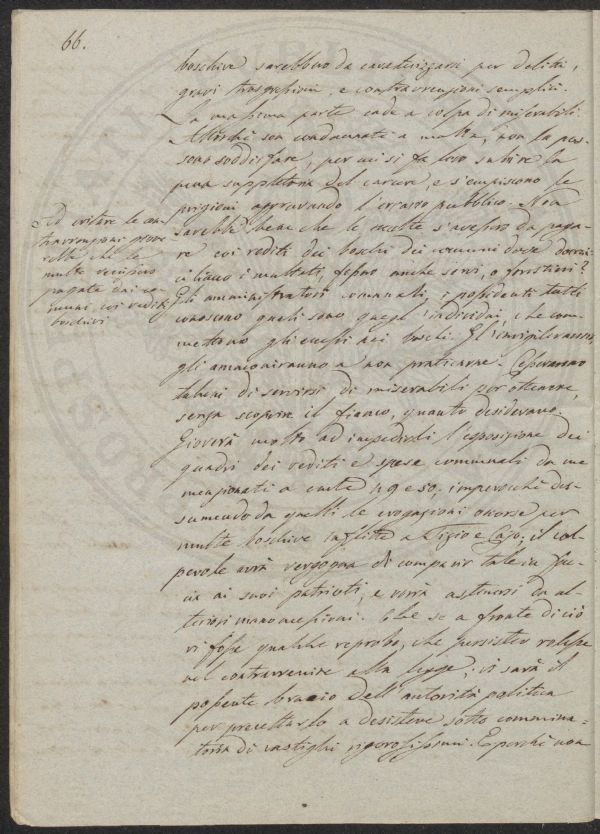 66.
boschive sarebbero da caratterizzarsi per delitti,
gravi trasgressioni, e contravvenzioni semplici.
La massima parte cade a colpa di miserabili.
Allorchè son condannati a multa, non la pos-
sono soddisfare, per cui si fa loro subire la
pena suppletoria del carcere, e s'empiscono le
prigioni aggravando l'erario pubblico. Non
sarebbe bene che le multe s'avessero da paga-
re coi rediti dei boschi dei comuni dove domi-
ciliano i multati, fossero anche servi, o forestieri?
Gli amministratori comunali, i possidenti tutti
conoscono quali sono quegl'individui, che com-
mettono gli eccessi nei boschi. Egl'invigileranno,
gli ammoniranno a non praticarne. Cesseranno
taluni di servirsi di miserabili per ottenere,
senza scoprire il fianco, quanto desideravano.
Gioverà molto ad impedirli l'esposizione dei
quadri dei rediti e spese comunali da me
menzionati a carte 49 e 50. imperocchè des-
sumendo da quelli le erogazioni occorse per
multe boschive inflitte a Tizio e Cajo; il col-
pevole avrà vergogna di comparir tale in fac-
cia ai suoi patrioti, e vorrà astenersi da ul-
teriori manomessioni. Che se a fronte di ciò
vi fosse qualche reprobo, che persister volesse
nel contravvenire alla legge; vi sarà il
possente braccio dell'autorità politica
per precettarlo a desistere sotto commina-
toria di castighi rigorosissimi. E perchè non
Ad evitare le con-
travvenzioni giove-
rebbe che le
multe venissero
pagate dai co-
muni, coi rediti
boschivi